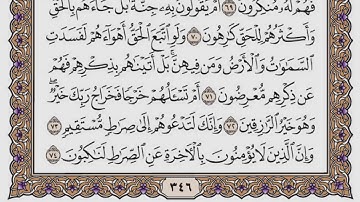 فَهُمْ لَهُۥ مُنكِرُونَ ٦٩ أَمْ يَقُولُونَ بِهِۦ جِنَّةٌۢ بَلْ جَآءَهُم بِٱلْحَقِّ
وَأَكْثَرُهُمْ لِلْحَقِّ كَٰرِهُونَ ٧٠ وَلَوِ ٱتَّبَعَ ٱلْحَقُّ أَهْوَآءَهُمْ لَفَسَدَتِ
ٱلسَّمَٰوَٰتُ وَٱلْأَرْضُ وَمَن فِيهِنَّۚ بَلْ أَتَيْنَٰهُم بِذِكْرِهِمْ فَهُمْ
عَن ذِكْرِهِم مُّعْرِضُونَ ٧١ أَمْ تَسْـَٔلُهُمْ خَرْجًا فَخَرَاجُ رَبِّكَ خَيْرٌۖ
وَهُوَ خَيْرُ ٱلرَّٰزِقِينَ ٧٢ وَإِنَّكَ لَتَدْعُوهُمْ إِلَىٰ صِرَٰطٍ مُّسْتَقِيمٍ ٧٣
وَإِنَّ ٱلَّذِينَ لَا يُؤْمِنُونَ بِٱلْءَاخِرَةِ عَنِ ٱلصِّرَٰطِ لَنَٰكِبُونَ ٧٤
٣٤٦